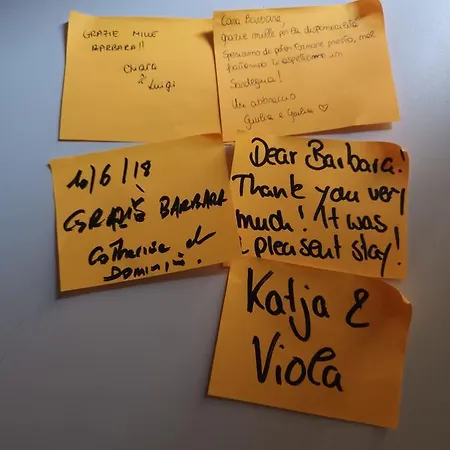 GRAZIE MILLE
BARBARA!!
Chiara
&
Luigi
Cara Barbara,
grazie mille per la disponibilità
Speriamo di poter tornare presto, nel
frattempo ti aspettiamo in
Sardegna!
Un abbraccio
Giulia e Giulia ♡
10/6/18
BARBARA
Catherine et
Dominiq
Dear Barbara!
Thank you very
much! It was
a pleasent stay!
Katja &
Viola